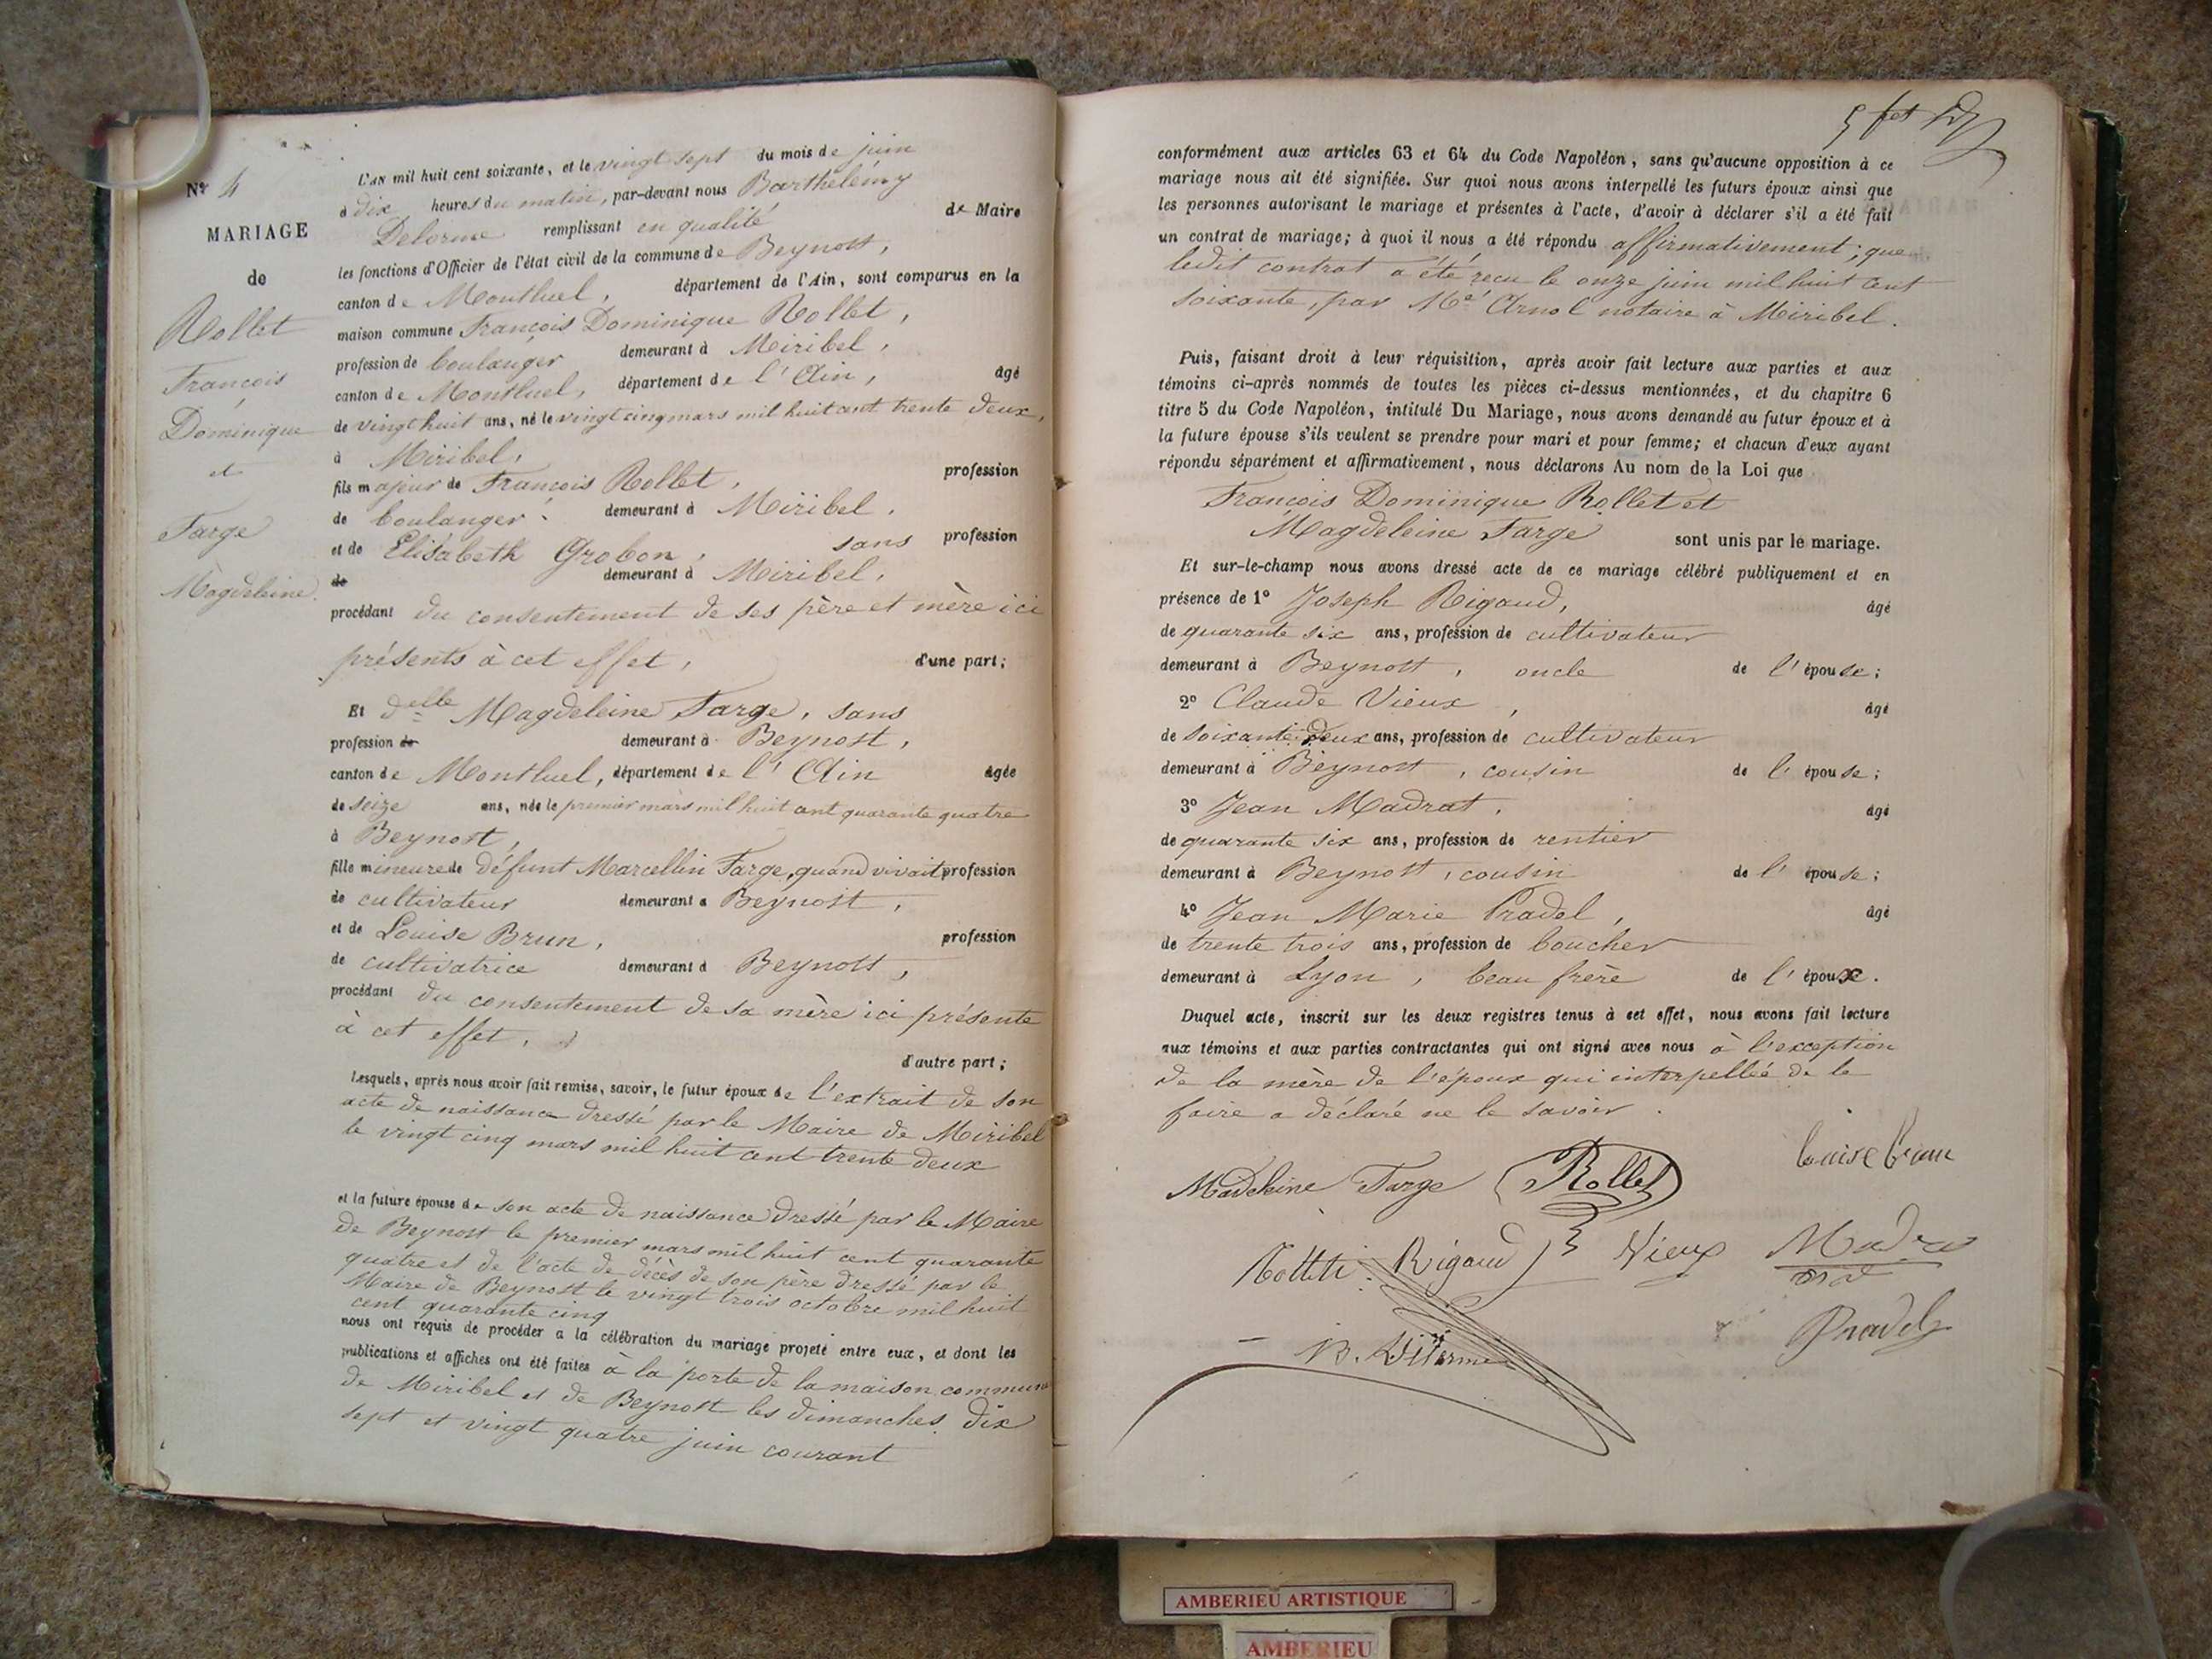 N° 4
MARIAGE
de
Rollet
François
Dominique
et
Farge
Magdeleine.
L'AN mil huit cent soixante, et le vingt sept du mois de juin
à dix heures du matin, par-devant nous Barthélémy
Delorme remplissant en qualité de Maire
les fonctions d'Officier de l'état civil de la commune de Beynost,
canton de Montluel, département de l'Ain, sont comparus en la
maison commune François Dominique Rollet,
profession de boulanger demeurant à Miribel,
canton de Montluel, département de l'Ain, âgé
de vingt huit ans, né le vingt cinq mars mil huit cent trente deux,
à Miribel,
fils majeur de François Rollet, profession
de boulanger demeurant à Miribel,
et de Elisabeth Grobon, sans profession
de demeurant à Miribel,
procédant du consentement de ses père et mère ici
présents à cet effet, d'une part;
Et delle Magdeleine Farge, sans
profession de demeurant à Beynost,
canton de Montluel, département de l'Ain âgée
de seize ans, née le premier mars mil huit cent quarante quatre
à Beynost,
fille mineure de défunt Marcellin Farge, quand vivait profession
de cultivateur demeurant à Beynost,
et de Louise Brun, profession
de cultivatrice demeurant à Beynost,
procédant du consentement de sa mère ici présente
à cet effet, d'autre part;
Lesquels, après nous avoir fait remise, savoir, le futur époux de l'extrait de son
acte de naissance dressé par le Maire de Miribel
le vingt cinq mars mil huit cent trente deux
et la future épouse de son acte de naissance dressé par le Maire
de Beynost le premier mars mil huit cent quarante
quatre et de l'acte de décès de son père dressé par le
Maire de Beynost le vingt trois octobre mil huit
cent quarante cinq
nous ont requis de procéder a la célébration du mariage projeté entre eux, et dont les
publications et affiches ont été faites à la porte de la maison commune
de Miribel et de Beynost les dimanches dix
sept et vingt quatre juin courant
conformément aux articles 63 et 64 du Code Napoléon, sans qu'aucune opposition à ce
mariage nous ait été signifiée. Sur quoi nous avons interpellé les futurs époux ainsi que
les personnes autorisant le mariage et présentes à l'acte, d'avoir à déclarer s'il a été fait
un contrat de mariage; à quoi il nous a été répondu affirmativement; que
ledit contrat a été reçu le onze juin mil huit cent
soixante, par Me Arnol notaire à Miribel.
Puis, faisant droit à leur réquisition, après avoir fait lecture aux parties et aux
témoins ci-après nommés de toutes les pièces ci-dessus mentionnées, et du chapitre 6
titre 5 du Code Napoléon, intitulé Du Mariage, nous avons demandé au futur époux et à
la future épouse s'ils veulent se prendre pour mari et pour femme; et chacun d'eux ayant
répondu séparément et affirmativement, nous déclarons Au nom de la Loi que
François Dominique Rollet et
Magdeleine Farge sont unis par le mariage.
Et sur-le-champ nous avons dressé acte de ce mariage célébré publiquement et en
présence de 1° Joseph Rigaud, âgé
de quarante six ans, profession de cultivateur
demeurant à Beynost, oncle de l'épouse;
2° Claude Vieux, âgé
de soixante deux ans, profession de cultivateur
demeurant à Beynost, cousin de l'épouse;
3° Jean Madrat, âgé
de quarante six ans, profession de rentier
demeurant à Beynost, cousin de l'épouse;
4° Jean Marie Pradel, âgé
de trente trois ans, profession de boucher
demeurant à Lyon, beau frère de l'époux.
Duquel acte, inscrit sur les deux registres tenus à cet effet, nous avons fait lecture
aux témoins et aux parties contractantes qui ont signé avec nous à l'exception
de la mère de l'époux qui interpellée de le
faire a déclaré ne le savoir.
Louise brun
Madeleine Farge Rollet
Rigaud Vieux
Pradel
B. Delorme
AMBERIEU ARTISTIQUE
AMBERIEU